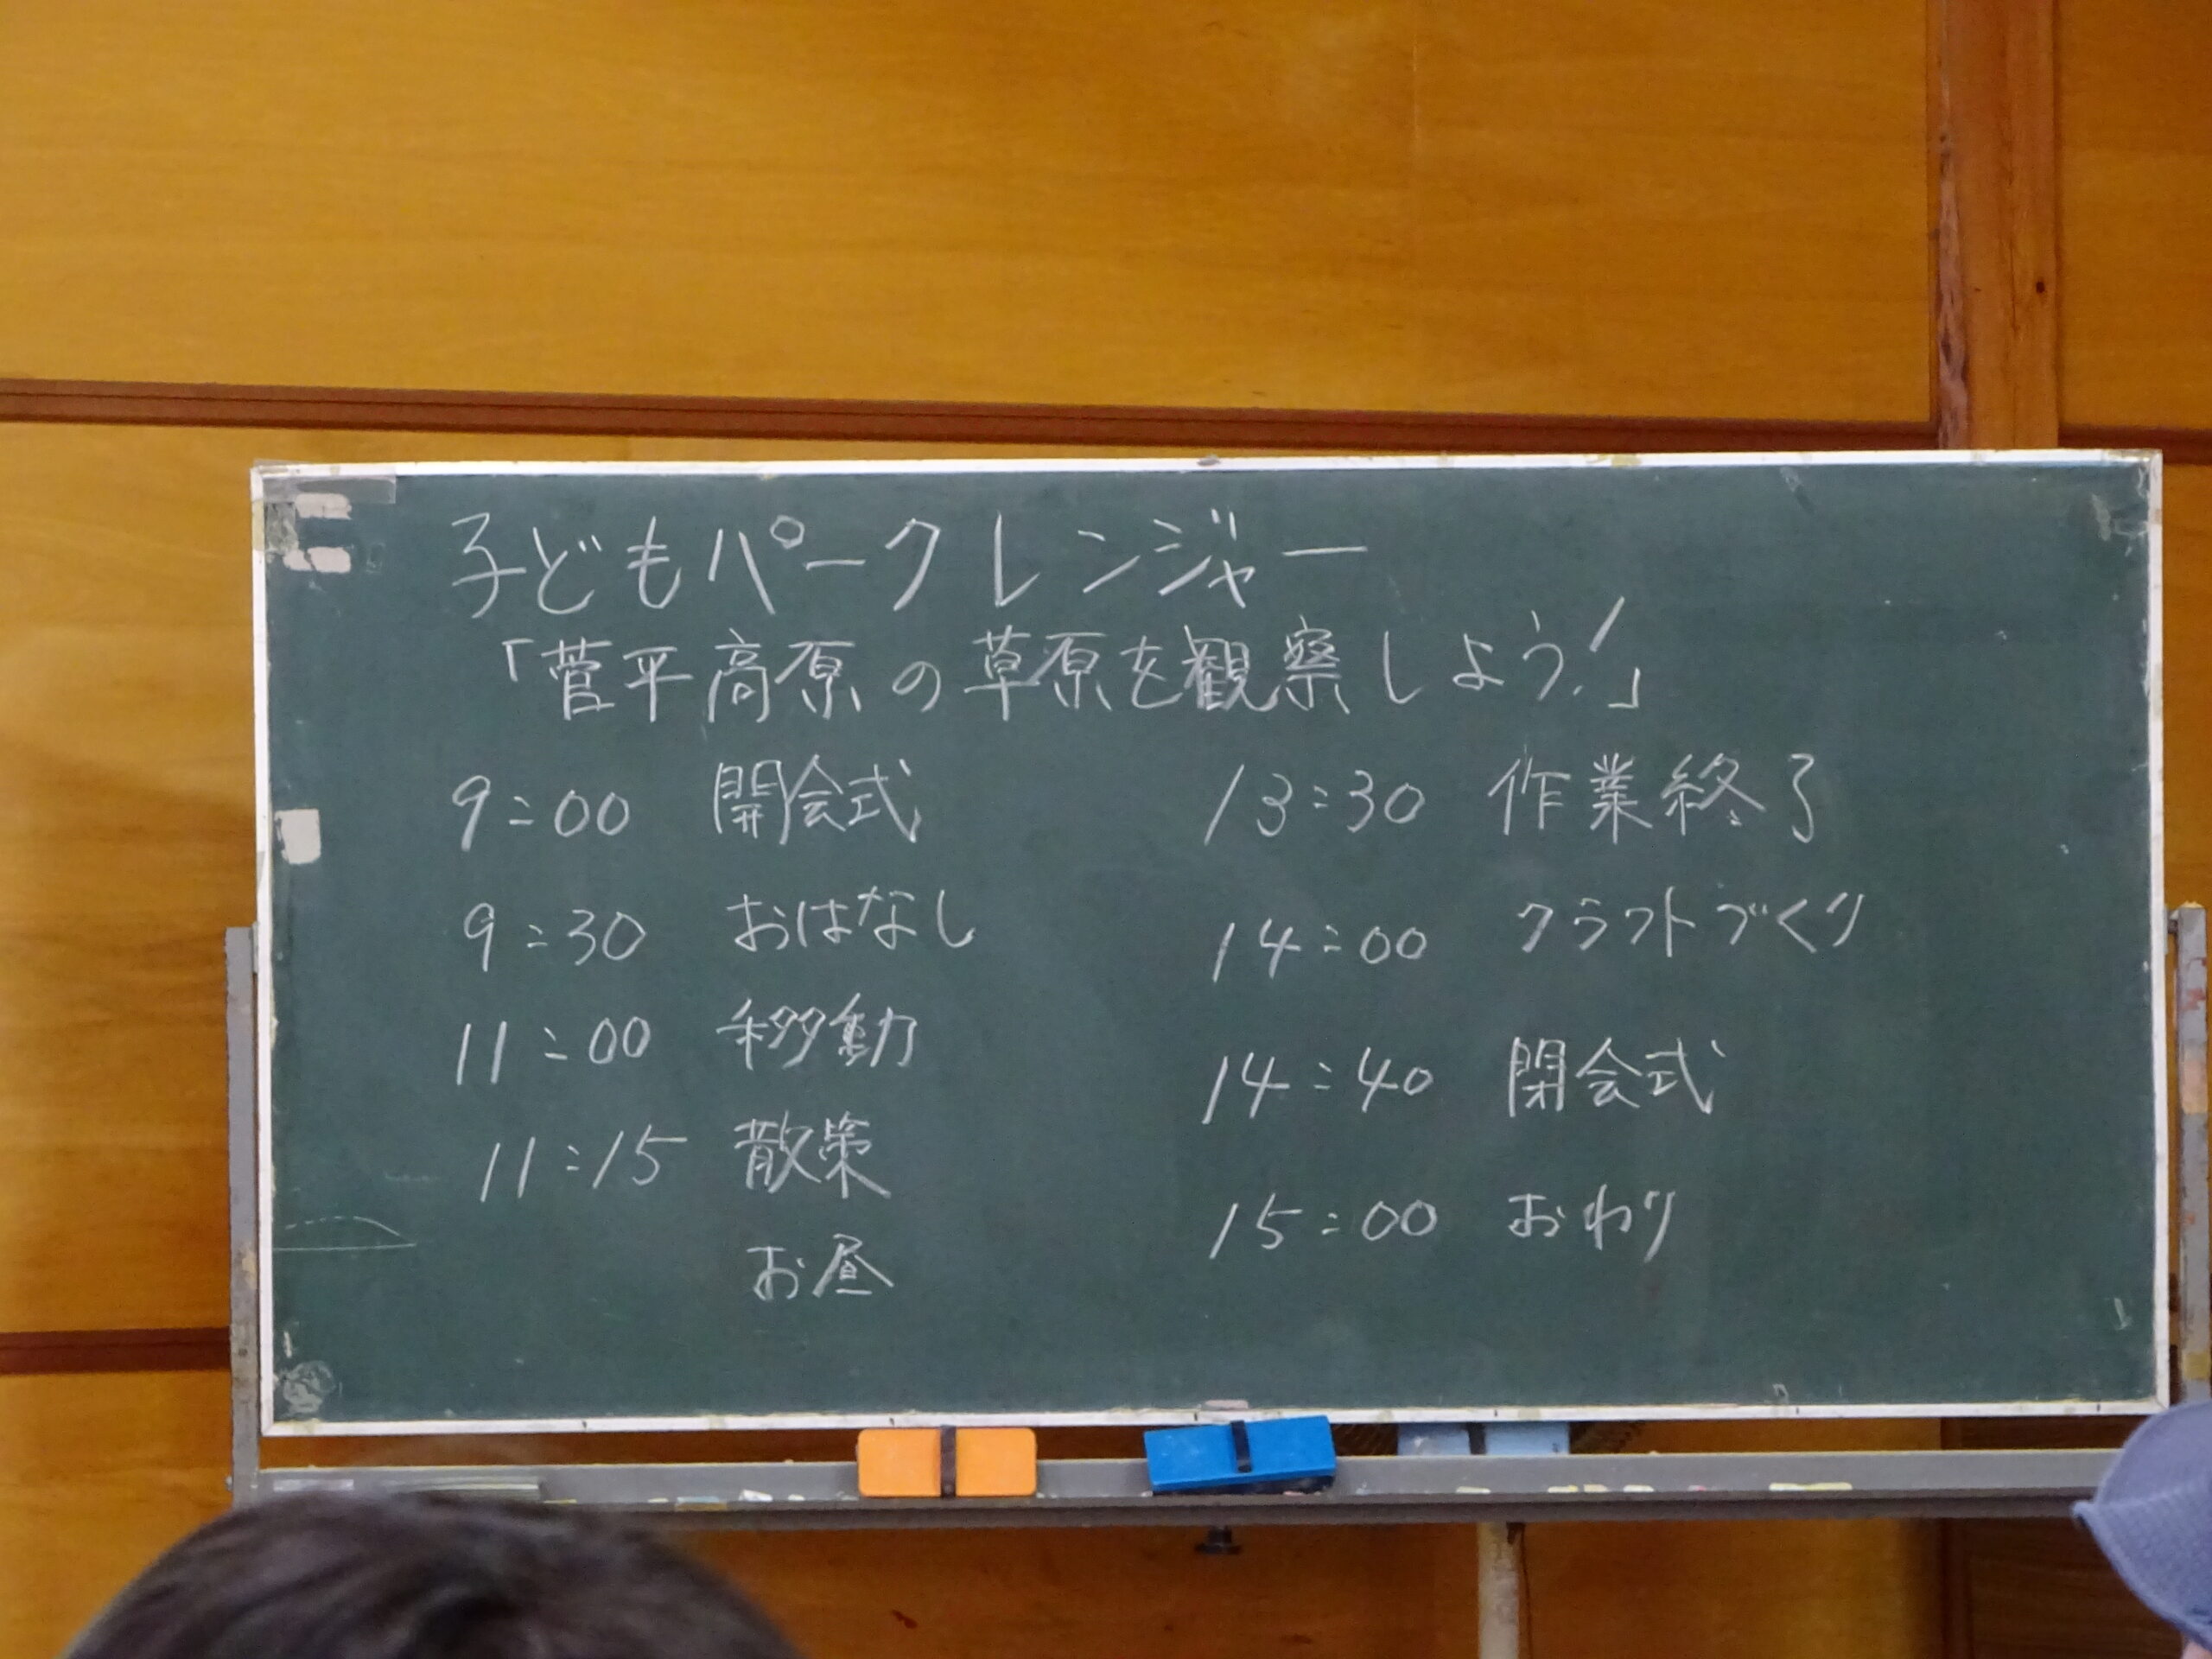 子どもパークレンジャー
「菅平高原の草原を観察しよう!」
9:00 開会式
9:30 おはなし
11:00 移動
11:15 散策
お昼
13:30 作業終了
14:00 クラフトづくり
14:40 閉会式
15:00 おわり